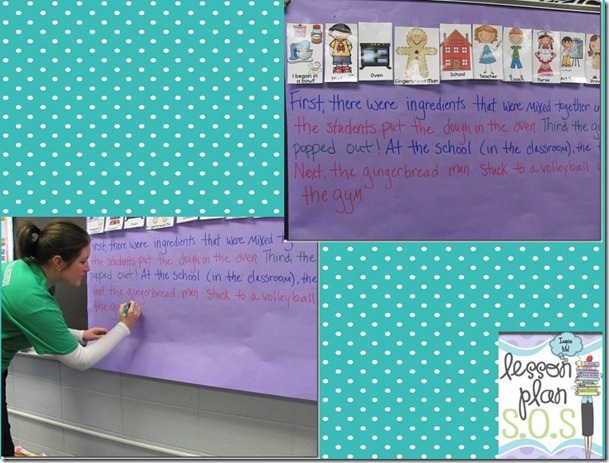 I began in a bowl! Oven Gingerbread Man School Teacher Coach Nurse
First, there were ingredients that were mixed together
the students put the dough in the oven. Third, the
popped out! At the school (in the classroom), the
Next, the gingerbread man stuck to a volleyball
the gym
First, there were ingredients that were mixed
the students put the dough in the oven. Third,
popped out! At the school (in the classroom), the
Next, the gingerbread man stuck to a volleyball
the
lesson
plan
S.O.S